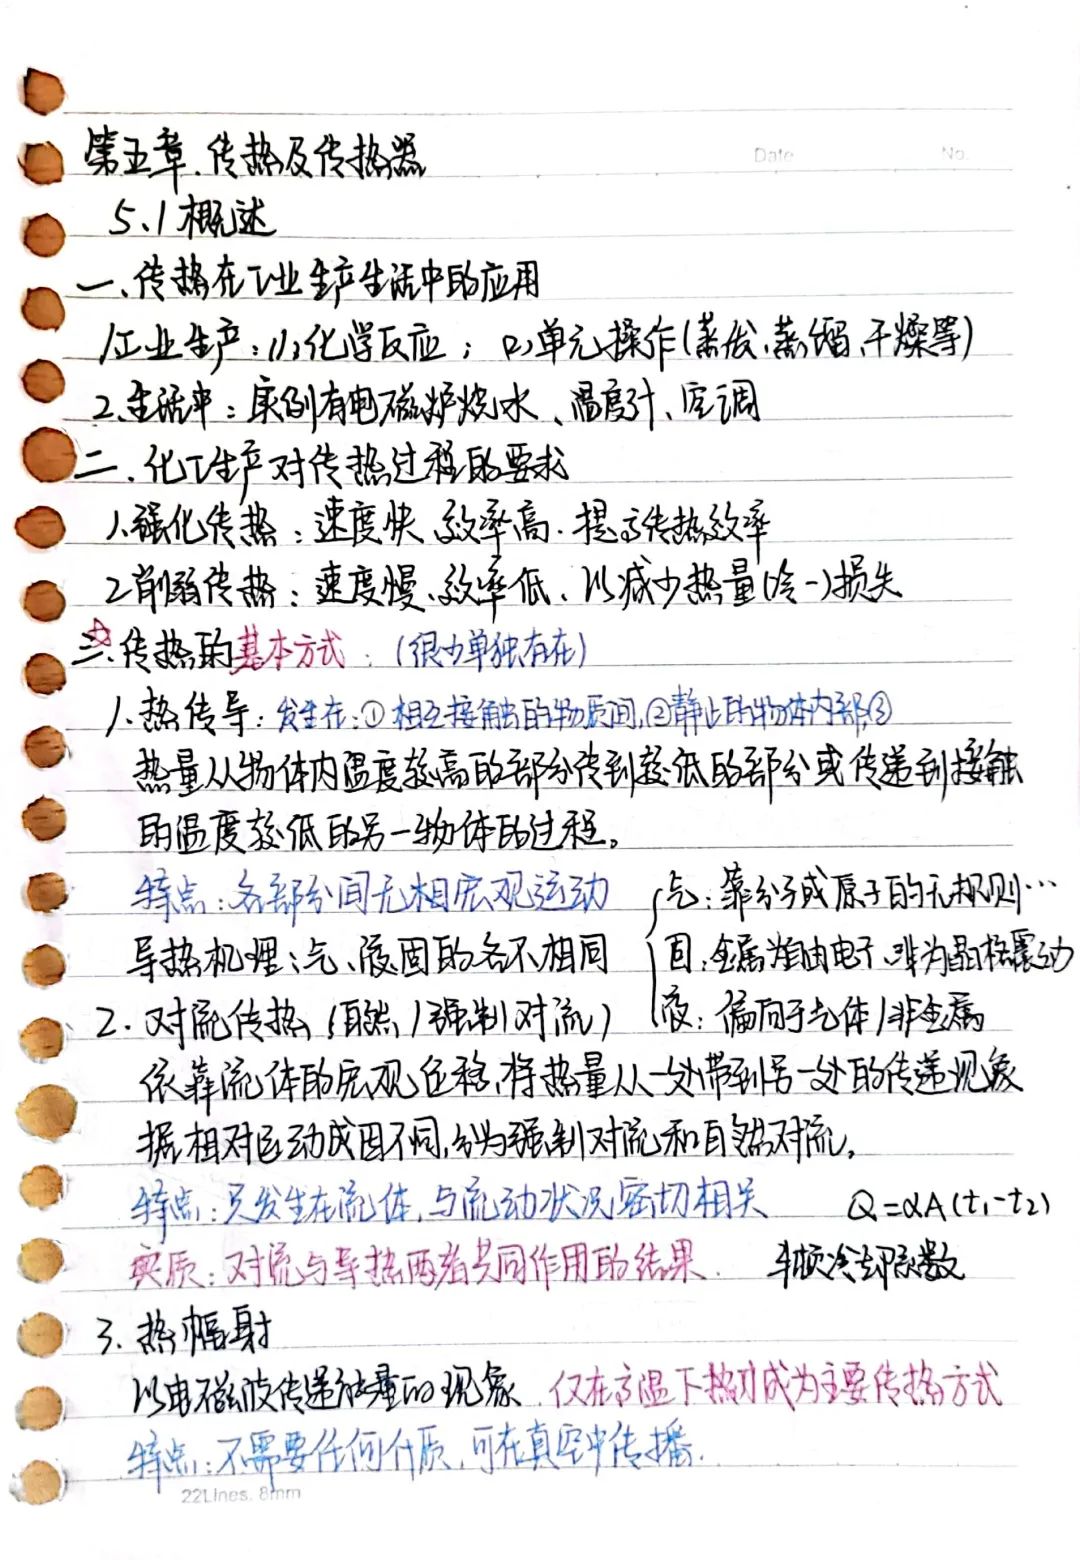 Date No.
第五章、传热及传热器
5.1概述
一、传热在工业生产生活中的应用
1.工业生产:(1)化学反应;(2)单元操作(蒸发、蒸馏、干燥等)
2.生活中:实例有电磁炉烧水、温度计、空调
二、化工生产对传热过程的要求
1.强化传热:速度快、效率高.提高传热效率
2.削弱传热:速度慢、效率低、以减少热量(冷-)损失
三、☆传热的基本方式:(很少单独存在)
1.热传导:发生在:①相互接触的物质间,②静止的物体内部③
热量从物体内温度较高的部分传到较低的部分或传递到接触
的温度较低的另一物体的过程。
特点:各部分间无相宏观运动
气:靠分子或原子的无规则…
导热机理:气、液固的各不相同
固:金属:自由电子、非为晶格震动
2.对流传热(自然/强制对流)
液:偏向于气体/非金属
依靠流体的宏观位移,将热量从一处带到另一处的传递现象
据相对运动成因不同,分为强制对流和自然对流。
特点:只发生在流体,与流动状况密切相关
Q=αA(t₁-t₂)
实质:对流与导热两者共同作用的结果.
牛顿冷却系数
3.热幅射
以电磁波传递能量的现象.仅在高温下热才成为主要传热方式
特点:不需要任何介质,可在真空中传播.
22Lines. 8mm